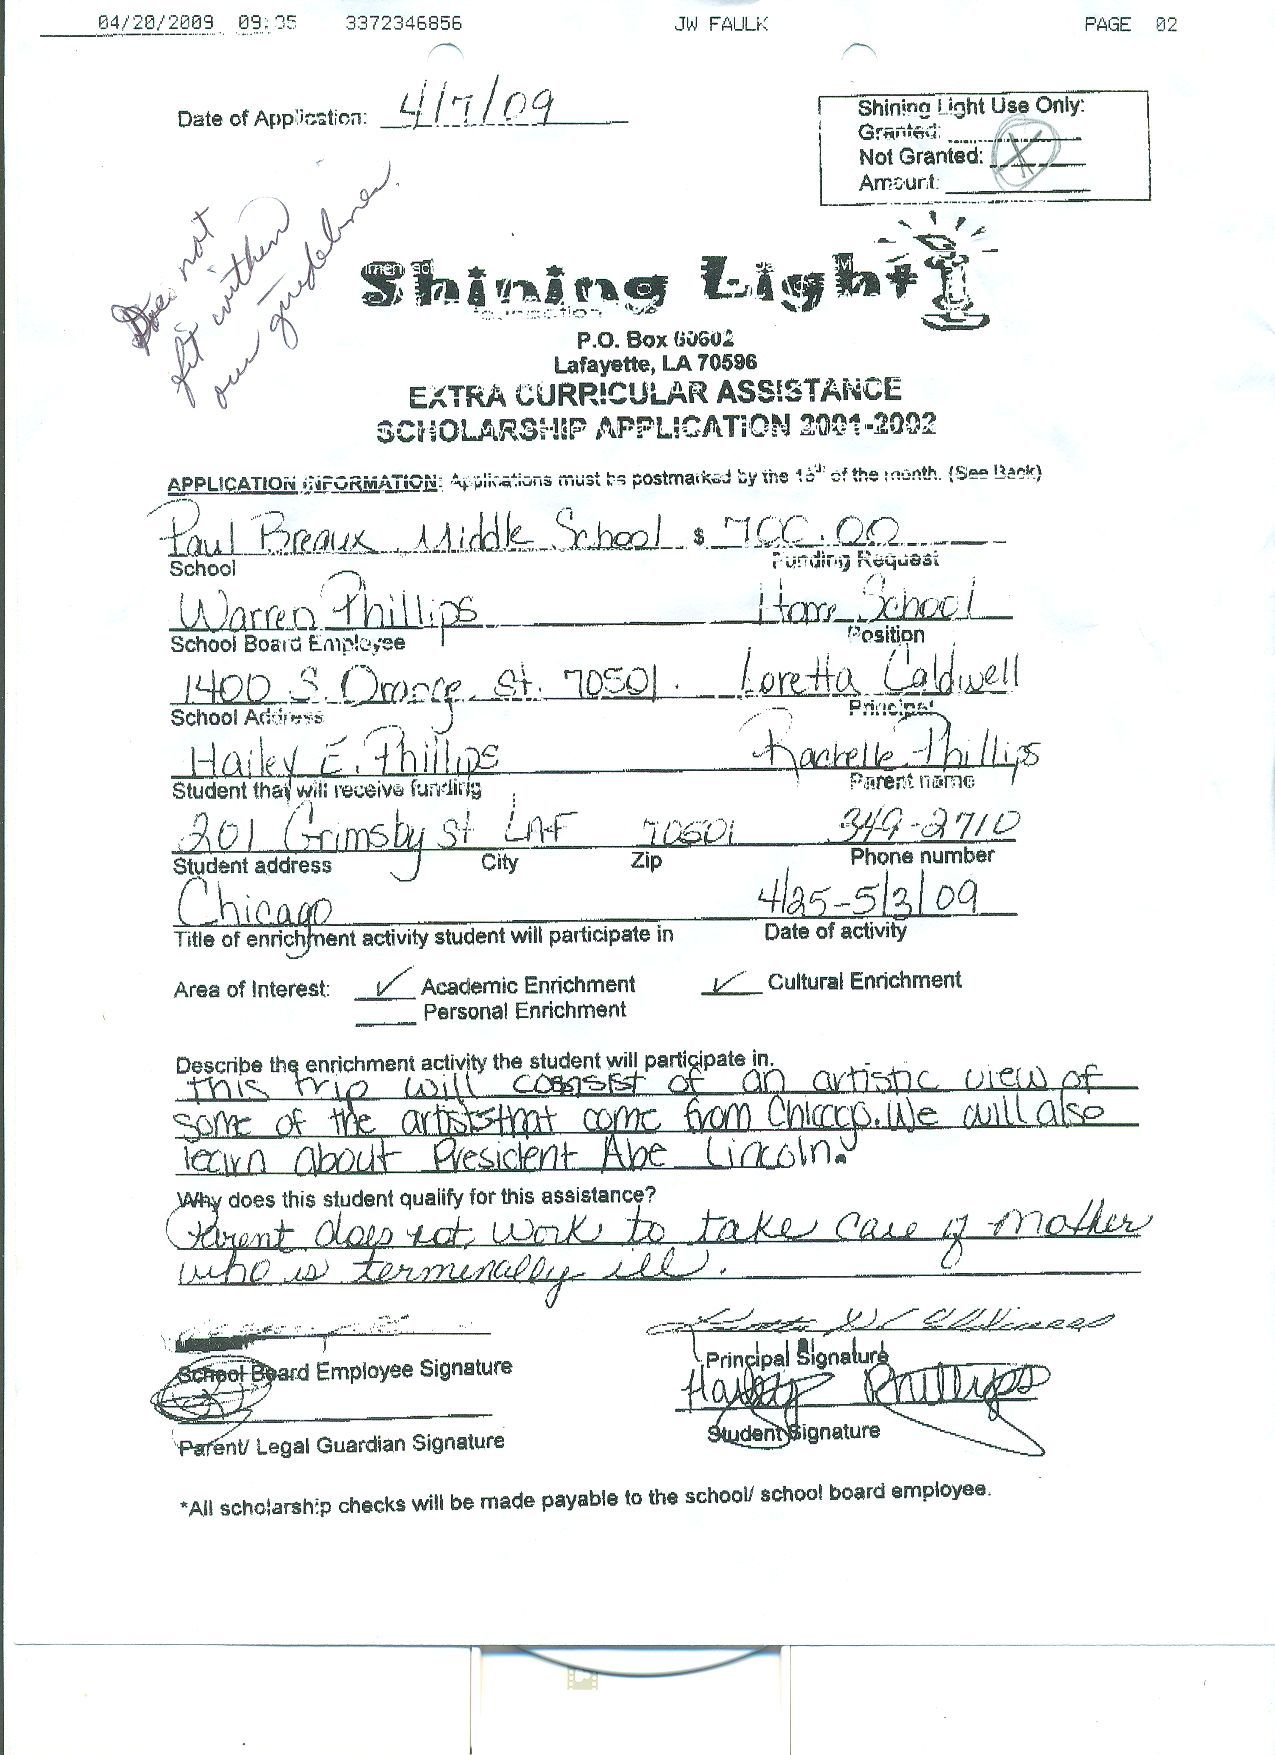 04/20/2009 09:35 3372346856 JW FAULK PAGE 02
Date of Application: 4/7/09
Shining Light Use Only:
Granted:
Not Granted: X
Amount:
Does not
fit within
our guidelines.
Shining Light
P.O. Box 60602
Lafayette, LA 70596
EXTRA CURRICULAR ASSISTANCE
SCHOLARSHIP APPLICATION 2001-2002
APPLICATION INFORMATION: Applications must be postmarked by the 15th of the month. (See Back)
Paul Breaux Middle School $ 700.00
School Funding Request
Warren Phillips Home School
School Board Employee Position
1400 S. Orange St. 70501. Loretta Caldwell
School Address Principal
Hailey E. Phillips Rachelle Phillips
Student that will receive funding Parent name
201 Grimsby St LAF 70501 349-2710
Student address City Zip Phone number
Chicago 4/25-5/3/09
Title of enrichment activity student will participate in Date of activity
Area of Interest: ✓ Academic Enrichment ✓ Cultural Enrichment
Personal Enrichment
Describe the enrichment activity the student will participate in.
This trip will consist of an artistic view of
some of the artists that come from Chicago. We will also
learn about President Abe Lincoln.
Why does this student qualify for this assistance?
Parent does not work to take care of mother
who is terminally ill.
School Board Employee Signature Principal Signature
Hailey Phillips
Parent/ Legal Guardian Signature Student Signature
*All scholarship checks will be made payable to the school/ school board employee.